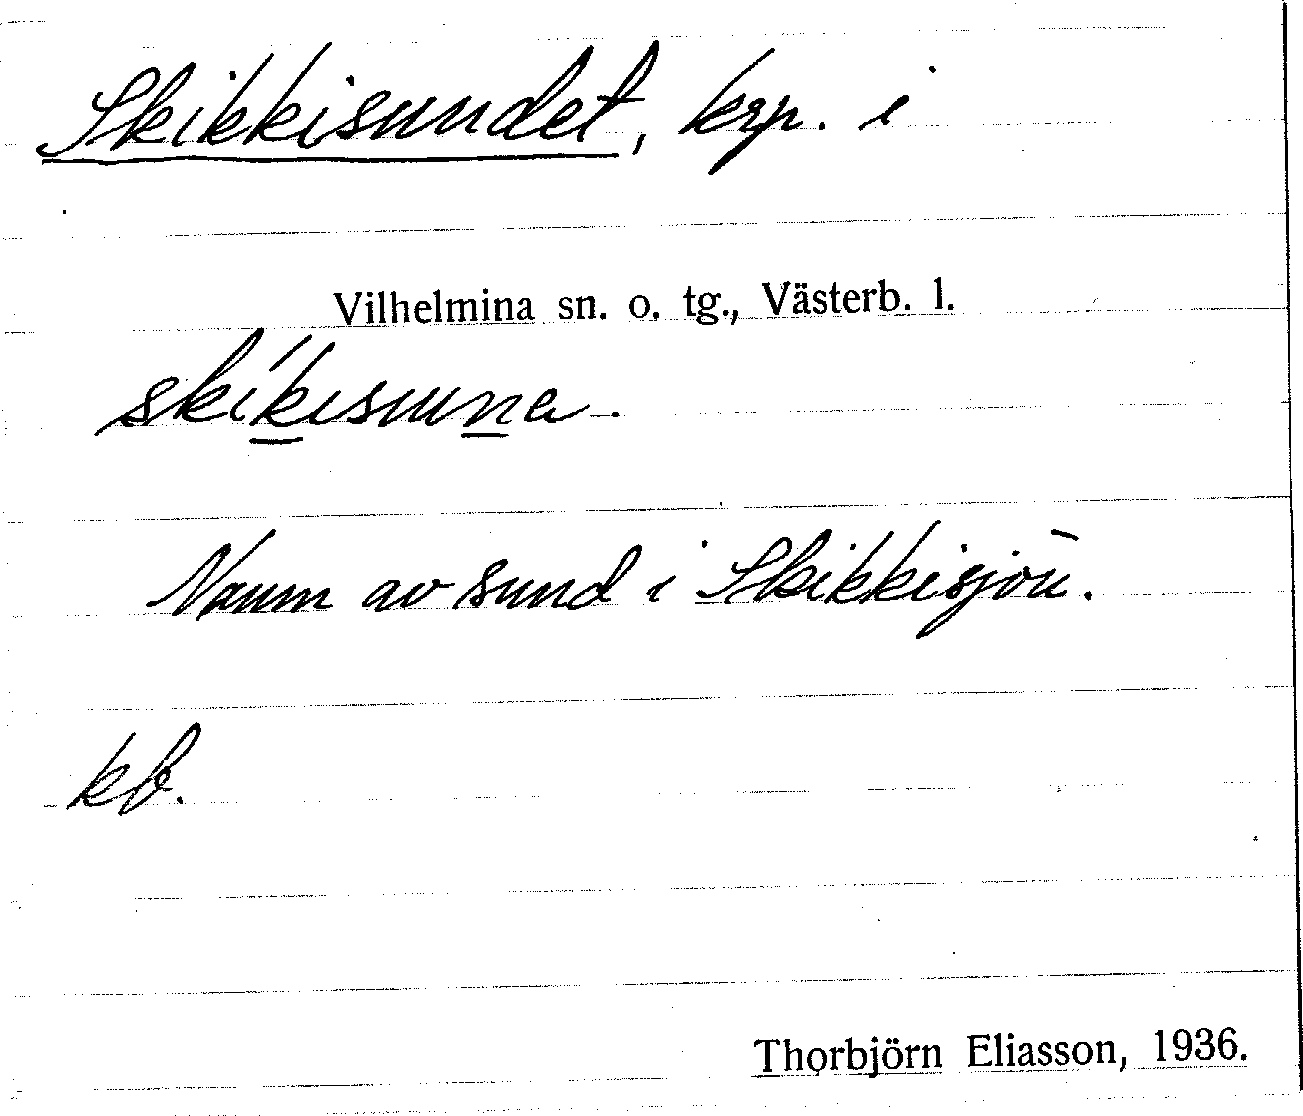 Skikkisundet, krp. i
Vilhelmina sn. o. tg., Västerb. l.
skikisuna.
Namn av sund i Skikkisjön.
kb.
Thorbjörn Eliasson, 1936.